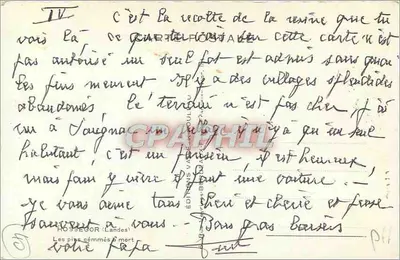 IV C'est la recolte de la resine que tu
vois là Ce que tu vois sur cette carte n'est
CARTE POSTALE
pas autorisé un seul pot est admis sans quoi
les pins meurent. Il y a des villages splendides
abandonnés, le terrain n'est pas cher j'ai
vu à un village il n'y a qu'un seul
habitant, c'est un parisien, y est heureux,
mais pour y vivre il faut une voiture -
Je vous aime tous cheri et cherie et pense
souvent à vous. Bons gros baisers
votre Papa
HOSSEGOR (Landes)
Les pins gemmés à mort
CPAPHIL